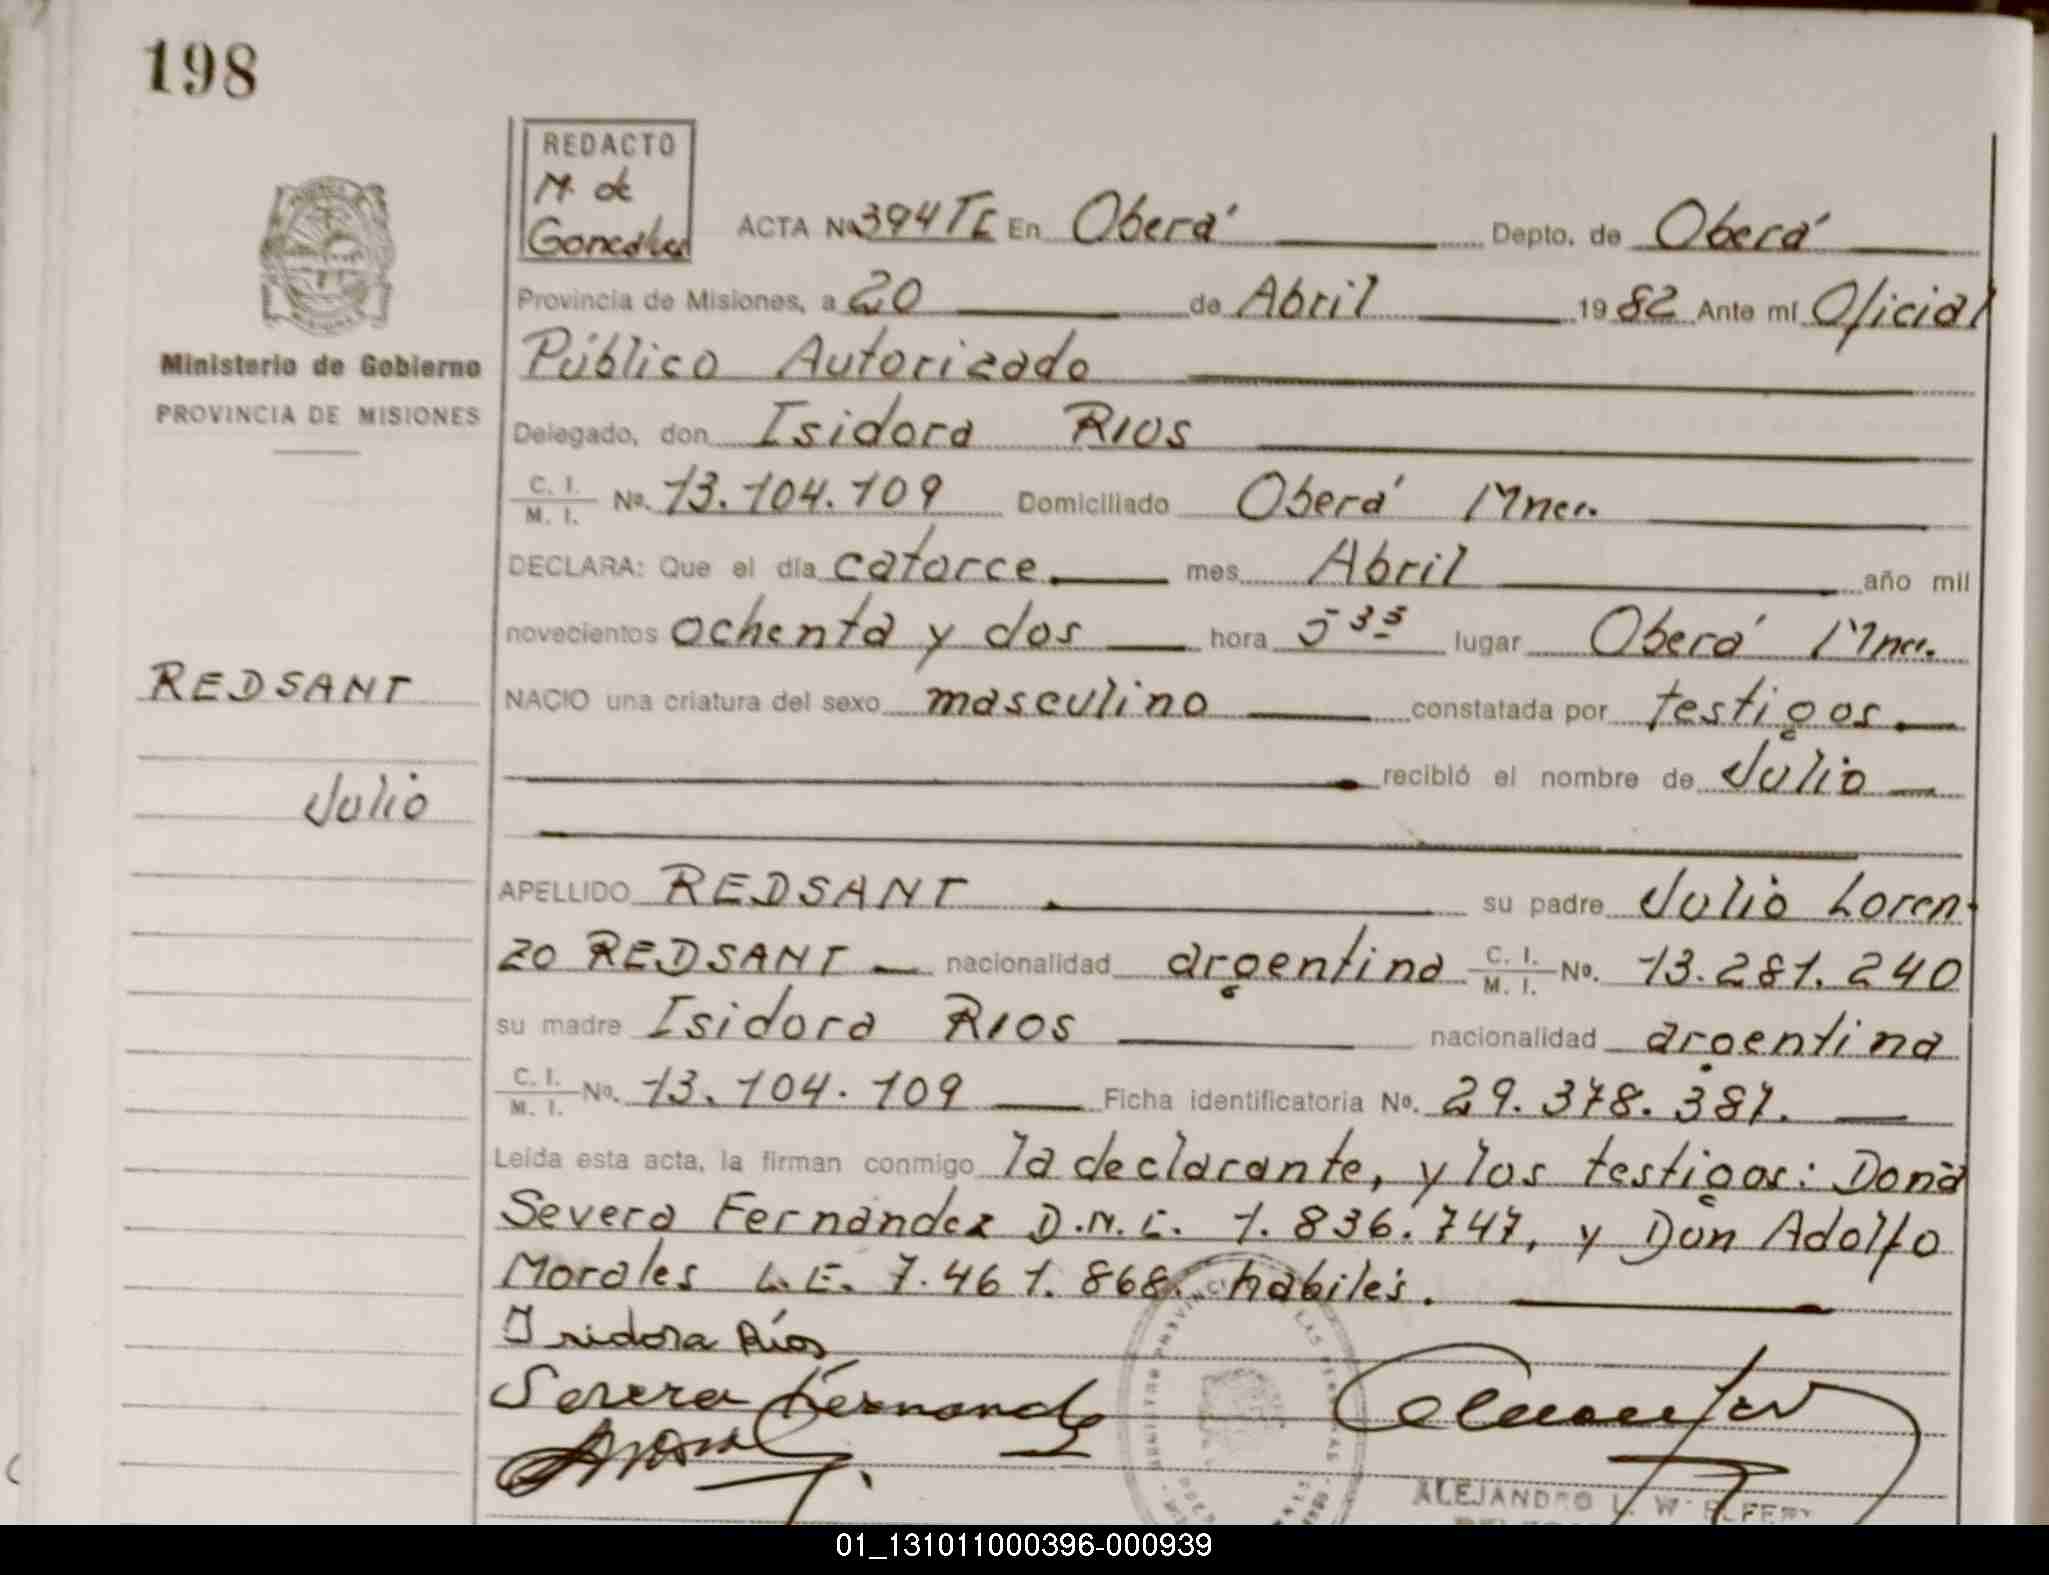 198
REDACTO
M. de
Gonzalez
ACTA No 394 TE En Oberá Depto. de Oberá
Provincia de Misiones, a 20 de Abril 1982 Ante mí Oficial
Público Autorizado
Ministerio de Gobierno
PROVINCIA DE MISIONES
Delegado, don Isidora RIOS
C. I. / M. I. No. 13.104.109 Domiciliado Oberá Mnes.
DECLARA: Que el día catorce mes Abril año mil
novecientos ochenta y dos hora 5 35 lugar Oberá Mnes.
REDSANT
NACIO una criatura del sexo masculino constatada por testigos
recibió el nombre de Julio
Julio
APELLIDO REDSANT su padre Julio Loren-
zo REDSANT nacionalidad argentina C. I. / M. I. No. 13.281.240
su madre Isidora RIOS nacionalidad argentina
C. I. / M. I. No. 13.104.109 Ficha identificatoria No. 29.378.381.
Leída esta acta, la firman conmigo la declarante, y los testigos: Doña
Severa Fernandez D.N.I. 1.836.747, y Don Adolfo
Morales L.E. 7.461.868. habiles.
Isidora Ríos
Severa Fernandez
ALEJANDRO
01_131011000396-000939